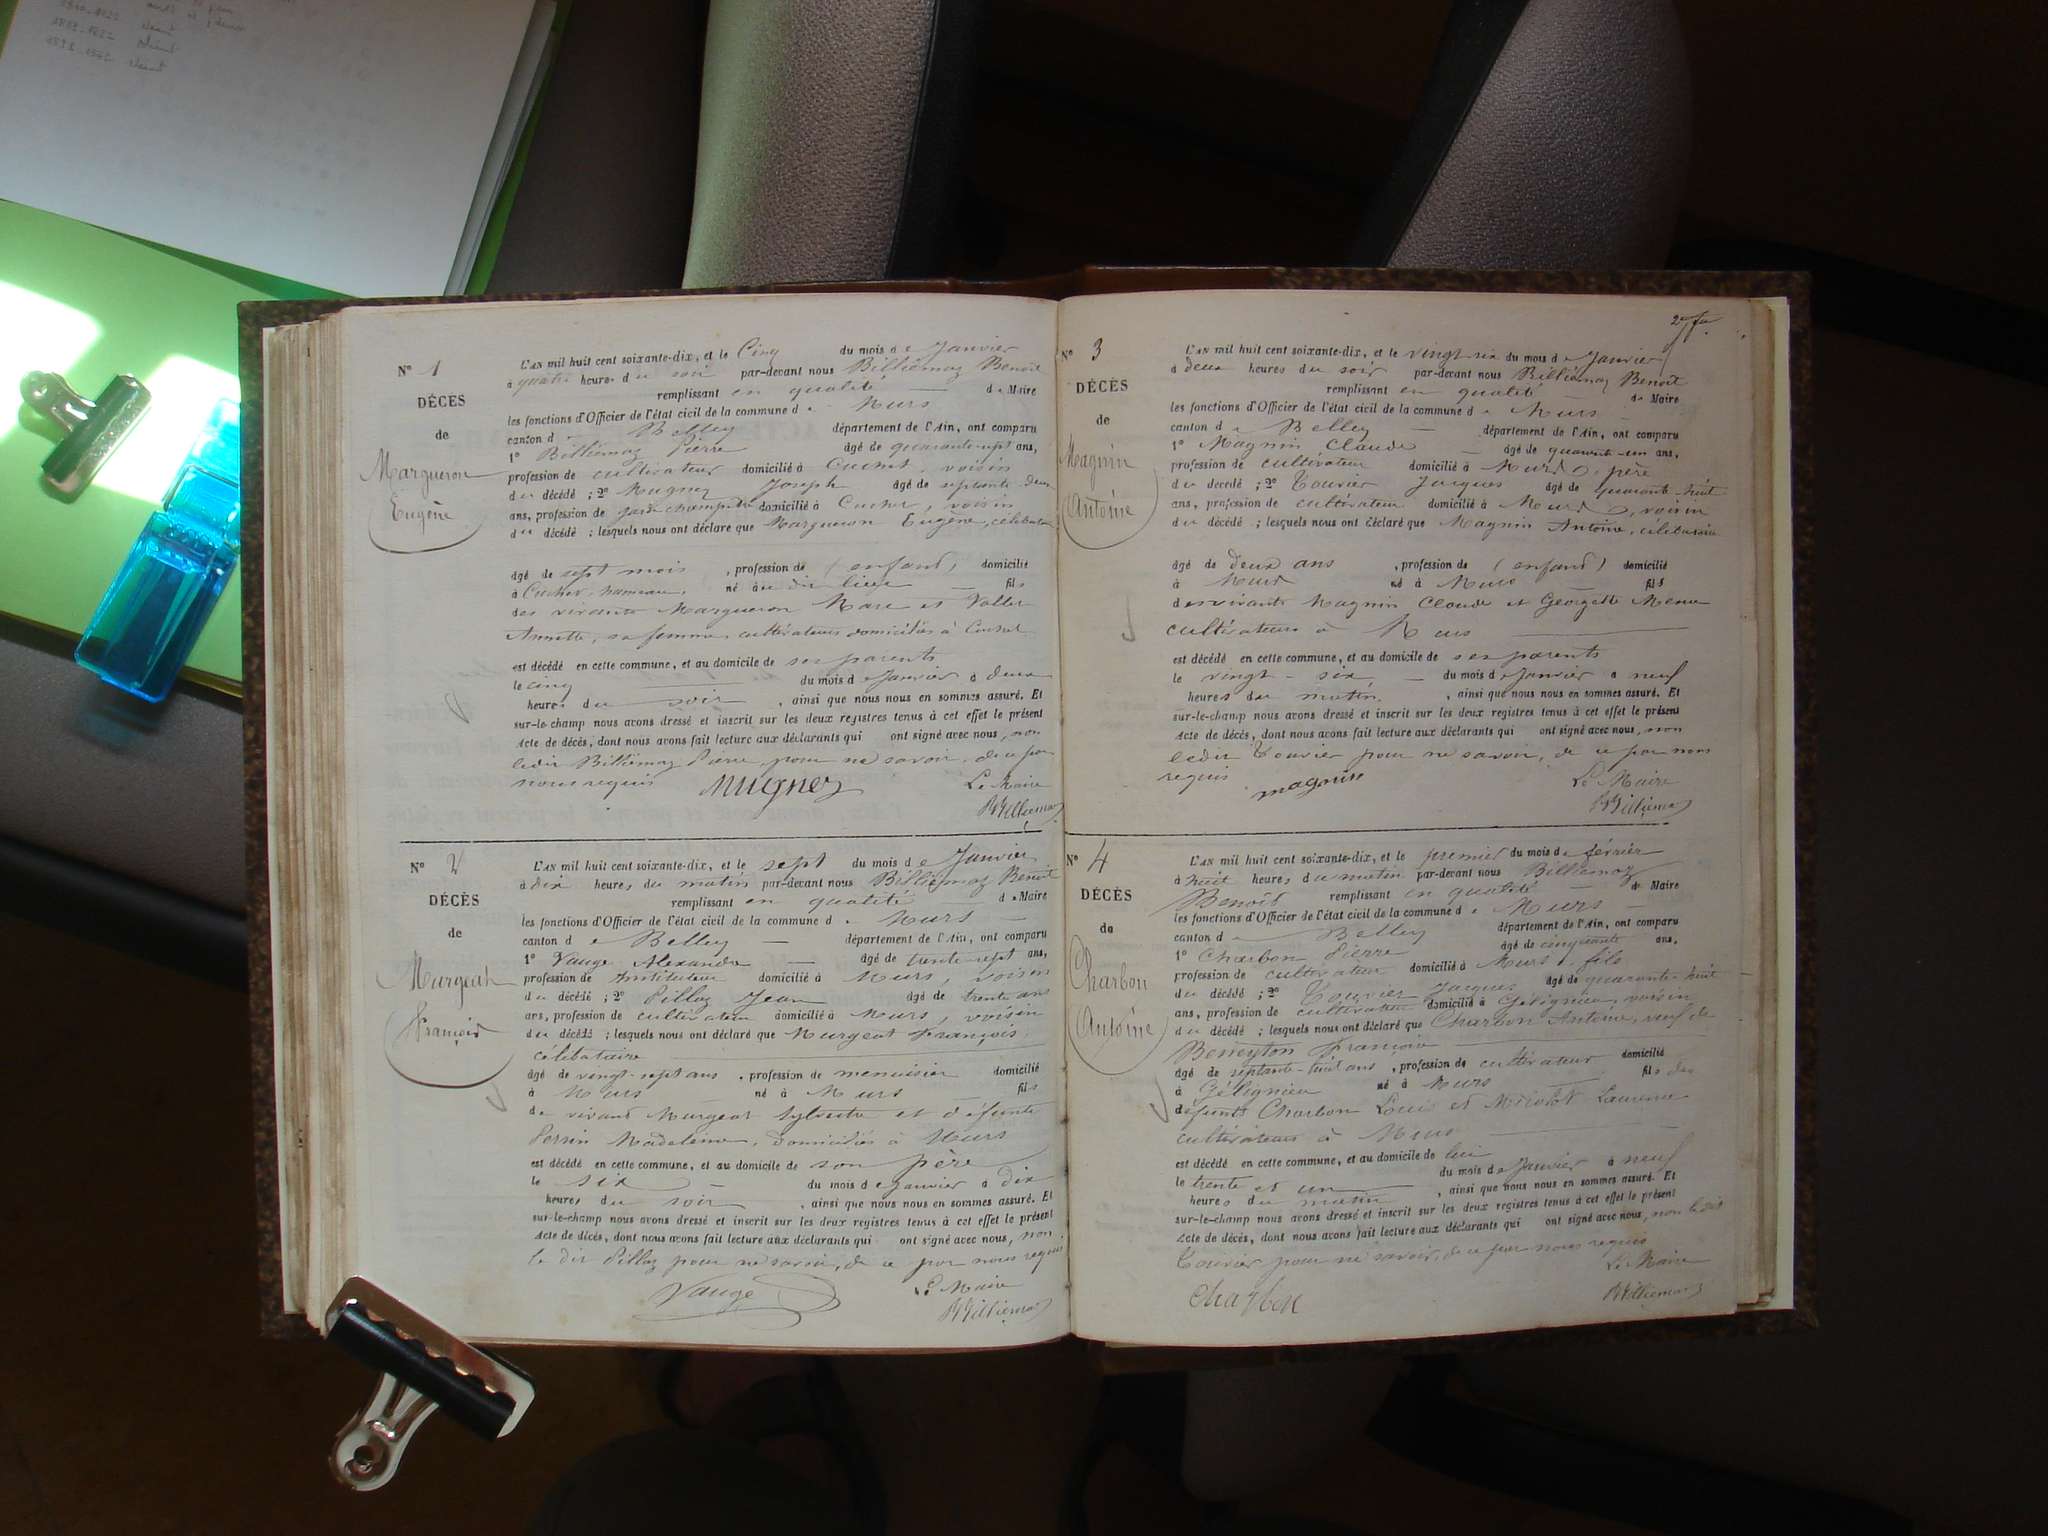 N° 1
DÉCÈS
de
Margueron
Eugène
L'AN mil huit cent soixante-dix, et le Cinq du mois de Janvier
à quatre heures du soir par-devant nous Billiémaz Benoit
remplissant en qualité de Maire
les fonctions d'Officier de l'état civil de la commune de Murs
canton de Belley département de l'Ain, ont comparu
1° Billiémaz Pierre âgé de quarante-sept ans,
profession de cultivateur domicilié à Cuchet, voisin
du décédé ; 2° Mugnez Joseph âgé de septante-deux
ans, profession de garde champêtre domicilié à Cuchet, voisin
du décédé ; lesquels nous ont déclaré que Margueron Eugène, célibataire
âgé de sept mois, profession de (enfant) domicilié
à Cuchet, hameau, né au dit lieu fils
des vivants Margueron Marc et Vallet
Annette, sa femme, cultivateurs domiciliés à Cuchet
est décédé en cette commune, et au domicile de ses parents
le cinq du mois de Janvier à deux
heures du soir, ainsi que nous nous en sommes assuré. Et
sur-le-champ nous avons dressé et inscrit sur les deux registres tenus à cet effet le présent
Acte de décès, dont nous avons fait lecture aux déclarants qui ont signé avec nous, non
ledit Billiémaz Pierre, pour ne savoir, de ce par
nous requis Mugnez Le Maire
BBilliemaz
N° 2
DÉCÈS
de
Murgeat
François
L'AN mil huit cent soixante-dix, et le sept du mois de Janvier
à dix heures du matin par-devant nous Billiémaz Benoit
remplissant en qualité de Maire
les fonctions d'Officier de l'état civil de la commune de Murs
canton de Belley département de l'Ain, ont comparu
1° Vauge Alexandre âgé de trente-sept ans,
profession de Instituteur domicilié à Murs, voisin
du décédé ; 2° Pillaz Jean âgé de trente ans
ans, profession de cultivateur domicilié à Murs, voisin
du décédé ; lesquels nous ont déclaré que Murgeat François,
célibataire
âgé de vingt-sept ans, profession de menuisier domicilié
à Murs né à Murs fils
de vivant Murgeat Sylvestre et défunte
Perrin Madeleine, domiciliés à Murs
est décédé en cette commune, et au domicile de son père
le six du mois de Janvier à dix
heures du soir, ainsi que nous nous en sommes assuré. Et
sur-le-champ nous avons dressé et inscrit sur les deux registres tenus à cet effet le présent
Acte de décès, dont nous avons fait lecture aux déclarants qui ont signé avec nous, non
le dit Pillaz pour ne savoir, de ce par nous requis
Vauge Le Maire
BBilliemaz
N° 3
DÉCÈS
de
Magnin
Antoine
L'AN mil huit cent soixante-dix, et le vingt-six du mois de Janvier
à deux heures du soir par-devant nous Billiémaz Benoit
remplissant en qualité de Maire
les fonctions d'Officier de l'état civil de la commune de Murs
canton de Belley département de l'Ain, ont comparu
1° Magnin Claude âgé de quarante-un ans,
profession de cultivateur domicilié à Murs, père
du décédé ; 2° Touvier Jacques âgé de quarante-huit
ans, profession de cultivateur domicilié à Murs, voisin
du décédé ; lesquels nous ont déclaré que Magnin Antoine, célibataire
âgé de deux ans, profession de (enfant) domicilié
à Murs né à Murs fils
des vivants Magnin Claude et Georgette
cultivateurs à Murs
est décédé en cette commune, et au domicile de ses parents
le vingt-six du mois de Janvier à neuf
heures du matin, ainsi que nous nous en sommes assuré. Et
sur-le-champ nous avons dressé et inscrit sur les deux registres tenus à cet effet le présent
Acte de décès, dont nous avons fait lecture aux déclarants qui ont signé avec nous, non
ledit Touvier pour ne savoir, de ce par nous
requis magnin Le Maire
BBilliemaz
N° 4
DÉCÈS
de
Charbon
Antoine
L'AN mil huit cent soixante-dix, et le premier du mois de février
à huit heures du matin par-devant nous Billiémaz
Benoit remplissant en qualité de Maire
les fonctions d'Officier de l'état civil de la commune de Murs
canton de Belley département de l'Ain, ont comparu
1° Charbon Pierre âgé de cinquante ans,
profession de cultivateur domicilié à Murs, fils
du décédé ; 2° Touvier Jacques âgé de quarante-huit
ans, profession de cultivateur domicilié à Gélignieu, voisin
du décédé ; lesquels nous ont déclaré que Charbon Antoine, veuf de
Beneyton
âgé de septante-huit ans, profession de cultivateur domicilié
à Gélignieu né à Murs fils des
défunts Charbon Louis et Laurence
cultivateurs à Murs
est décédé en cette commune, et au domicile de lui
le trente et un du mois de Janvier à neuf
heures du matin, ainsi que nous nous en sommes assuré. Et
sur-le-champ nous avons dressé et inscrit sur les deux registres tenus à cet effet le présent
Acte de décès, dont nous avons fait lecture aux déclarants qui ont signé avec nous, non le dit
Touvier pour ne savoir, de ce par nous requis
Le Maire
Charbon BBilliemaz